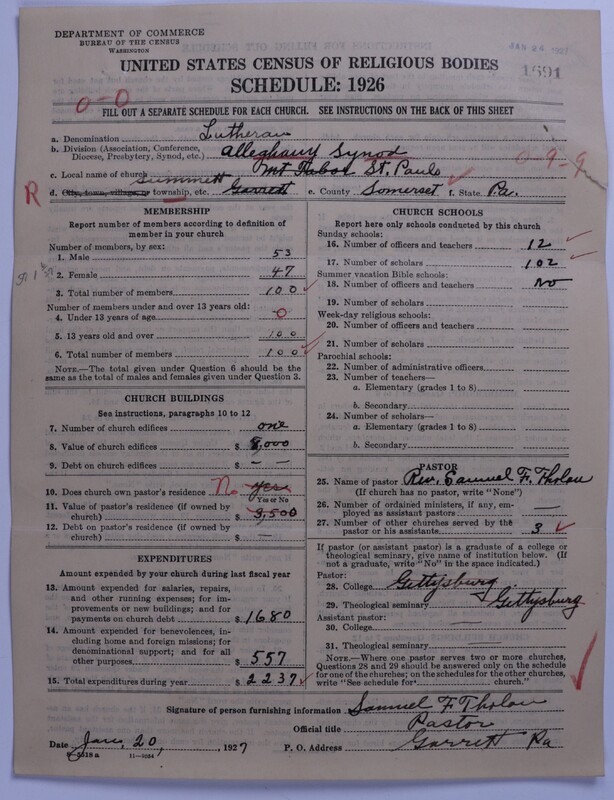 DEPARTMENT OF COMMERCE
BUREAU OF THE CENSUS
WASHINGTON
JAN 24 1927
1591
UNITED STATES CENSUS OF RELIGIOUS BODIES
SCHEDULE: 1926
0-0
FILL OUT A SEPARATE SCHEDULE FOR EACH CHURCH. SEE INSTRUCTIONS ON THE BACK OF THIS SHEET
a. Denomination Lutheran
b. Division (Association, Conference, Diocese, Presbytery, Synod, etc.) Alleghany Synod
0-9-9
c. Local name of church Mt Tabor St. Pauls
Summett
R d. City, town, village, or township, etc. Garrett e. County Somerset f. State Pa.
MEMBERSHIP
Report number of members according to definition of member in your church
Number of members, by sex:
1. Male 53
2. Female 47
3. Total number of members 100
Number of members under and over 13 years old:
4. Under 13 years of age 0
5. 13 years old and over 100
6. Total number of members 100
NOTE.—The total given under Question 6 should be the same as the total of males and females given under Question 3.
CHURCH BUILDINGS
See instructions, paragraphs 10 to 12
7. Number of church edifices one
8. Value of church edifices $ 8,000
9. Debt on church edifices $ — —
10. Does church own pastor's residence No Yes
Yes or No
11. Value of pastor's residence (if owned by church) $ 3,500
12. Debt on pastor's residence (if owned by church) $ —
EXPENDITURES
Amount expended by your church during last fiscal year
13. Amount expended for salaries, repairs, and other running expenses; for improvements or new buildings; and for payments on church debt $ 1680
14. Amount expended for benevolences, including home and foreign missions; for denominational support; and for all other purposes $ 557
15. Total expenditures during year $ 2237
CHURCH SCHOOLS
Report here only schools conducted by this church
Sunday schools:
16. Number of officers and teachers 12
17. Number of scholars 102
Summer vacation Bible schools:
18. Number of officers and teachers No
19. Number of scholars
Week-day religious schools:
20. Number of officers and teachers
21. Number of scholars
Parochial schools:
22. Number of administrative officers
23. Number of teachers—
a. Elementary (grades 1 to 8)
b. Secondary
24. Number of scholars—
a. Elementary (grades 1 to 8)
b. Secondary
PASTOR
25. Name of pastor Rev. Samuel F. Tholan
(If church has no pastor, write "None")
26. Number of ordained ministers, if any, employed as assistant pastors —
27. Number of other churches served by the pastor or his assistants 3
If pastor (or assistant pastor) is a graduate of a college or theological seminary, give name of institution below. (If not a graduate, write "No" in the space indicated.)
Pastor:
28. College Gettysburg
29. Theological seminary Gettysburg
Assistant pastor:
30. College —
31. Theological seminary —
NOTE.—Where one pastor serves two or more churches, Questions 28 and 29 should be answered only on the schedule for one of the churches; on the schedules for the other churches, write "See schedule for church."
Signature of person furnishing information Samuel F Tholan
Official title Pastor
Date Jan. 20, 1927 P. O. Address Garrett Pa
11-9084